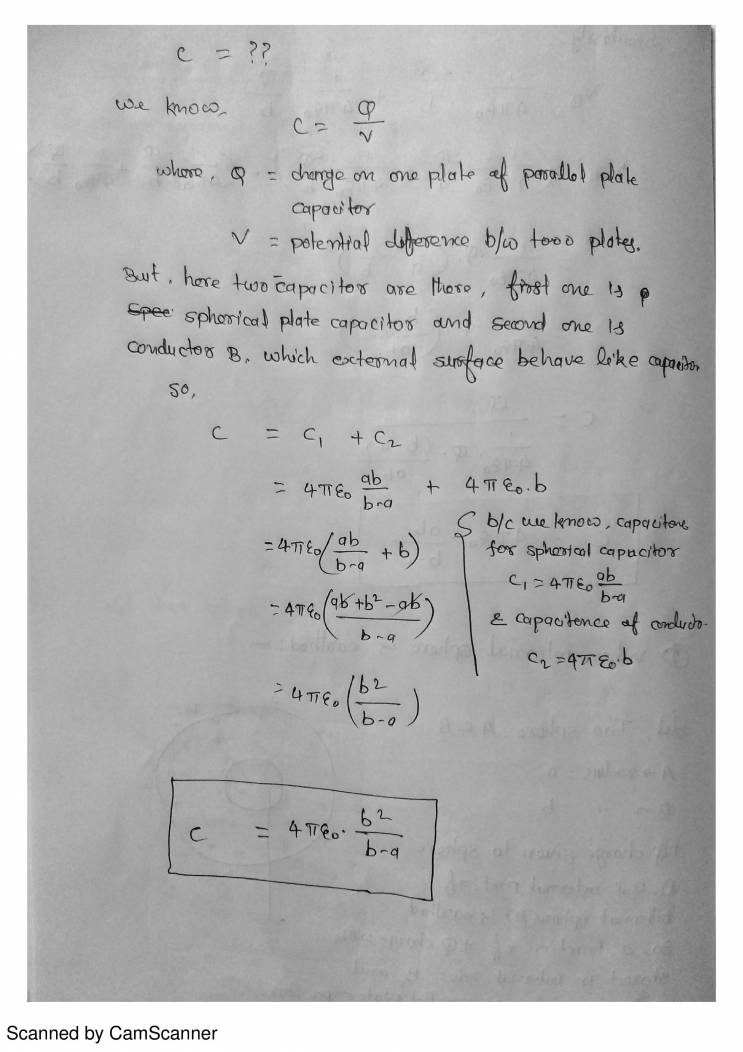 C = ??
we know,
C = Q/V
where, Q = charge on one plate of parallel plate
capacitor
V = potential difference b/w two plates.
But, here two capacitor are there, first one is
spherical plate capacitor and second one is
conductor B, which external surface behave like capacitor
so,
C = C₁ + C₂
= 4πε₀ ab/b-a + 4πε₀.b
{ b/c we know, capacitence
= 4πε₀(ab/b-a + b)
for spherical capacitor
C₁ = 4πε₀ ab/b-a
= 4πε₀(ab+b²-ab/b-a)
& capacitence of conducto-
C₂ = 4πε₀.b
= 4πε₀(b²/b-a)
C = 4πε₀. b²/b-a
Scanned by CamScanner